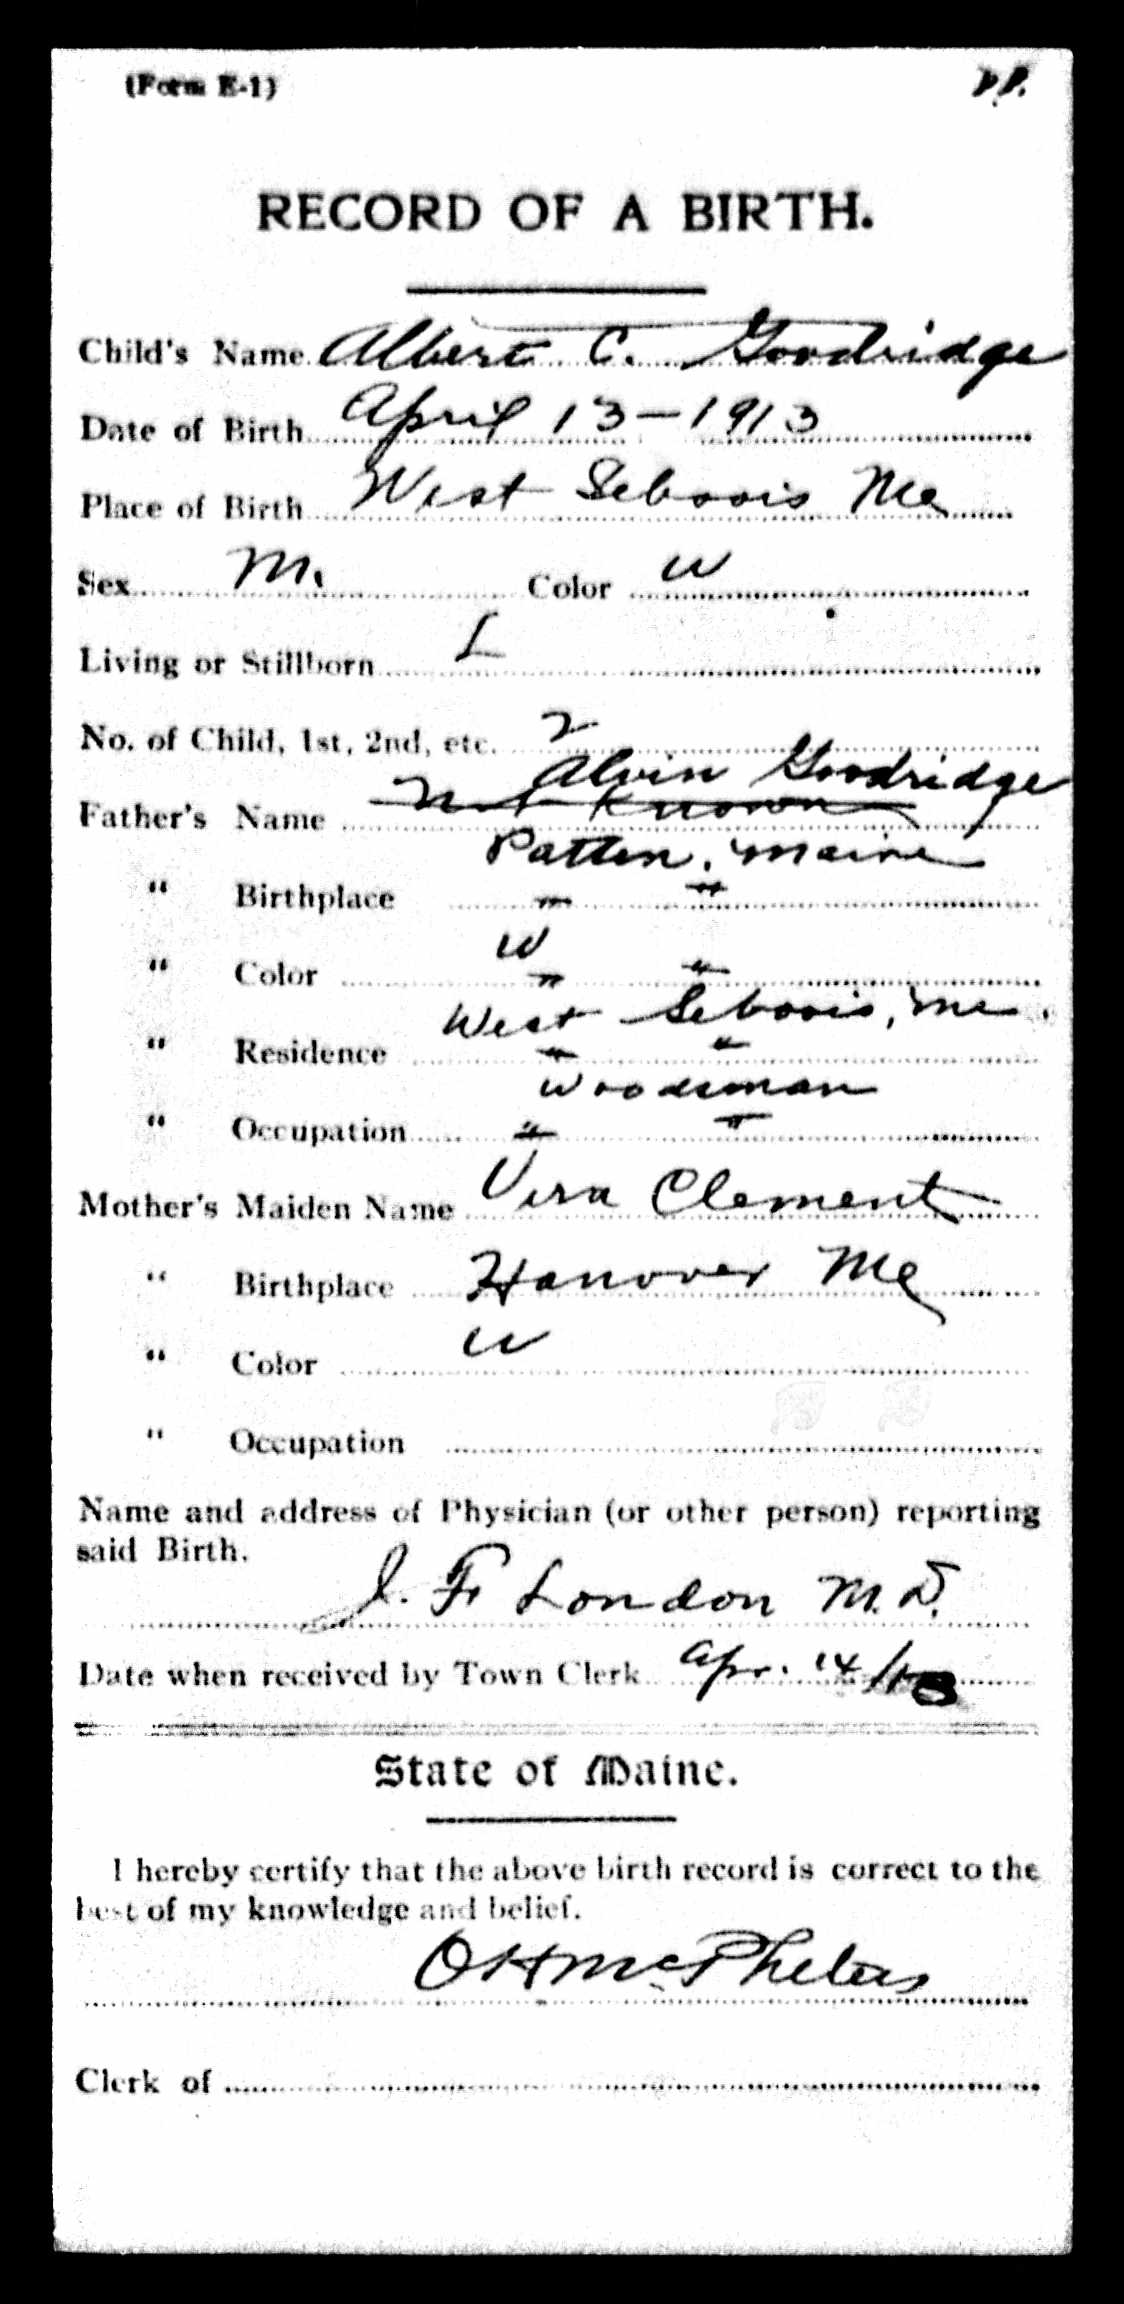 (Form E-1)
P.P.
RECORD OF A BIRTH.
Child's Name Albert C. Goodridge
Date of Birth April 13-1913
Place of Birth West Seboois Me
Sex M. Color W
Living or Stillborn L
No. of Child, 1st, 2nd, etc. 2
Alvin Goodridge
Father's Name Not Known
Patten, Maine
" Birthplace " "
W
" Color " "
West Seboois, Me.
" Residence " "
Woodsman
" Occupation " "
Mother's Maiden Name Vera Clement
" Birthplace Hanover Me
" Color W
" Occupation
Name and address of Physician (or other person) reporting
said Birth.
J. F. London M.D.
Date when received by Town Clerk Apr. 14/13
State of Maine.
I hereby certify that the above birth record is correct to the
best of my knowledge and belief.
OH McPheters
Clerk of